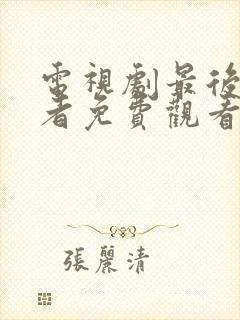 電視劇最後
者免費觀看
張麗清